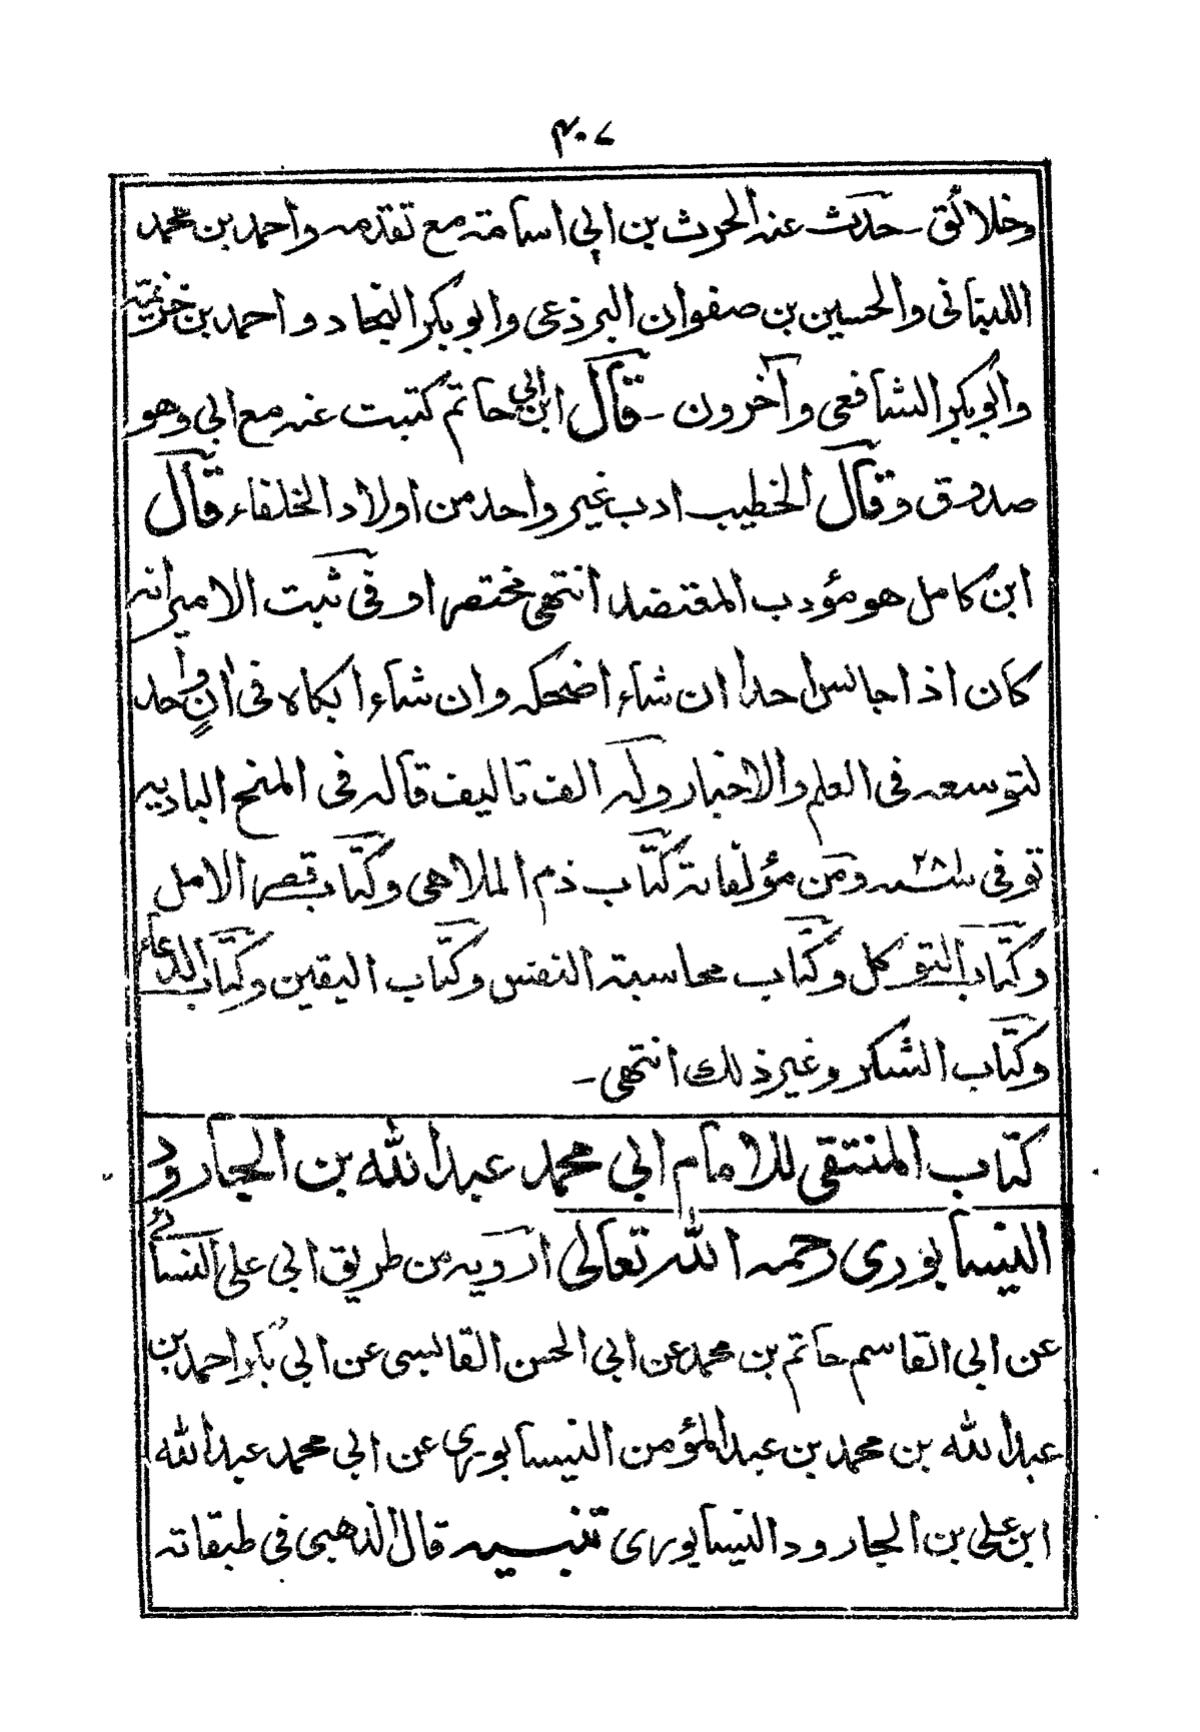 ٤٠٧
وخلائق ـ حدث عنه الحرث بن ابي اسامة مع تقدمه واحمد بن محمد
اللبناني والحسين بن صفوان البرذعي وابوبكر النجاد واحمد بن خزيمة
وابوبكر الشافعي وآخرون ـ قال ابن ابي حاتم كتبت عنه مع ابي وهو
صدوق وقال الخطيب ادب غير واحد من اولاد الخلفاء قال
ابن كامل هو مؤدب المقتضد انتهى مختصرا وفي ثبت الامير انه
كان اذا جالس احدا ان شاء اضحكه وان شاء ابكاه في ان واحد
لتوسعه في العلم والاخبار وله الف تاليف قاله في المنح الباديه
توفي سنه ٢٨ ومن مؤلفاته كتاب ذم الملاهي وكتاب قصر الامل
وكتاب التوكل وكتاب محاسبة النفس وكتاب اليقين وكتاب الدعاء
وكتاب الشكر وغير ذلك انتهى ـ
كتاب المنتقى للامام ابي محمد عبد الله بن الجارود
النيسابوري رحمه الله تعالى ارويه من طريق ابي علي النسائي
عن ابي القاسم حاتم بن محمد عن ابي الحسن القابسي عن ابي بكر احمد بن
عبد الله بن محمد بن عبد المؤمن النيسابوري عن ابي محمد عبد الله
ابن علي بن الجارود النيسابوري تنبيه قال الذهبي في طبقاته